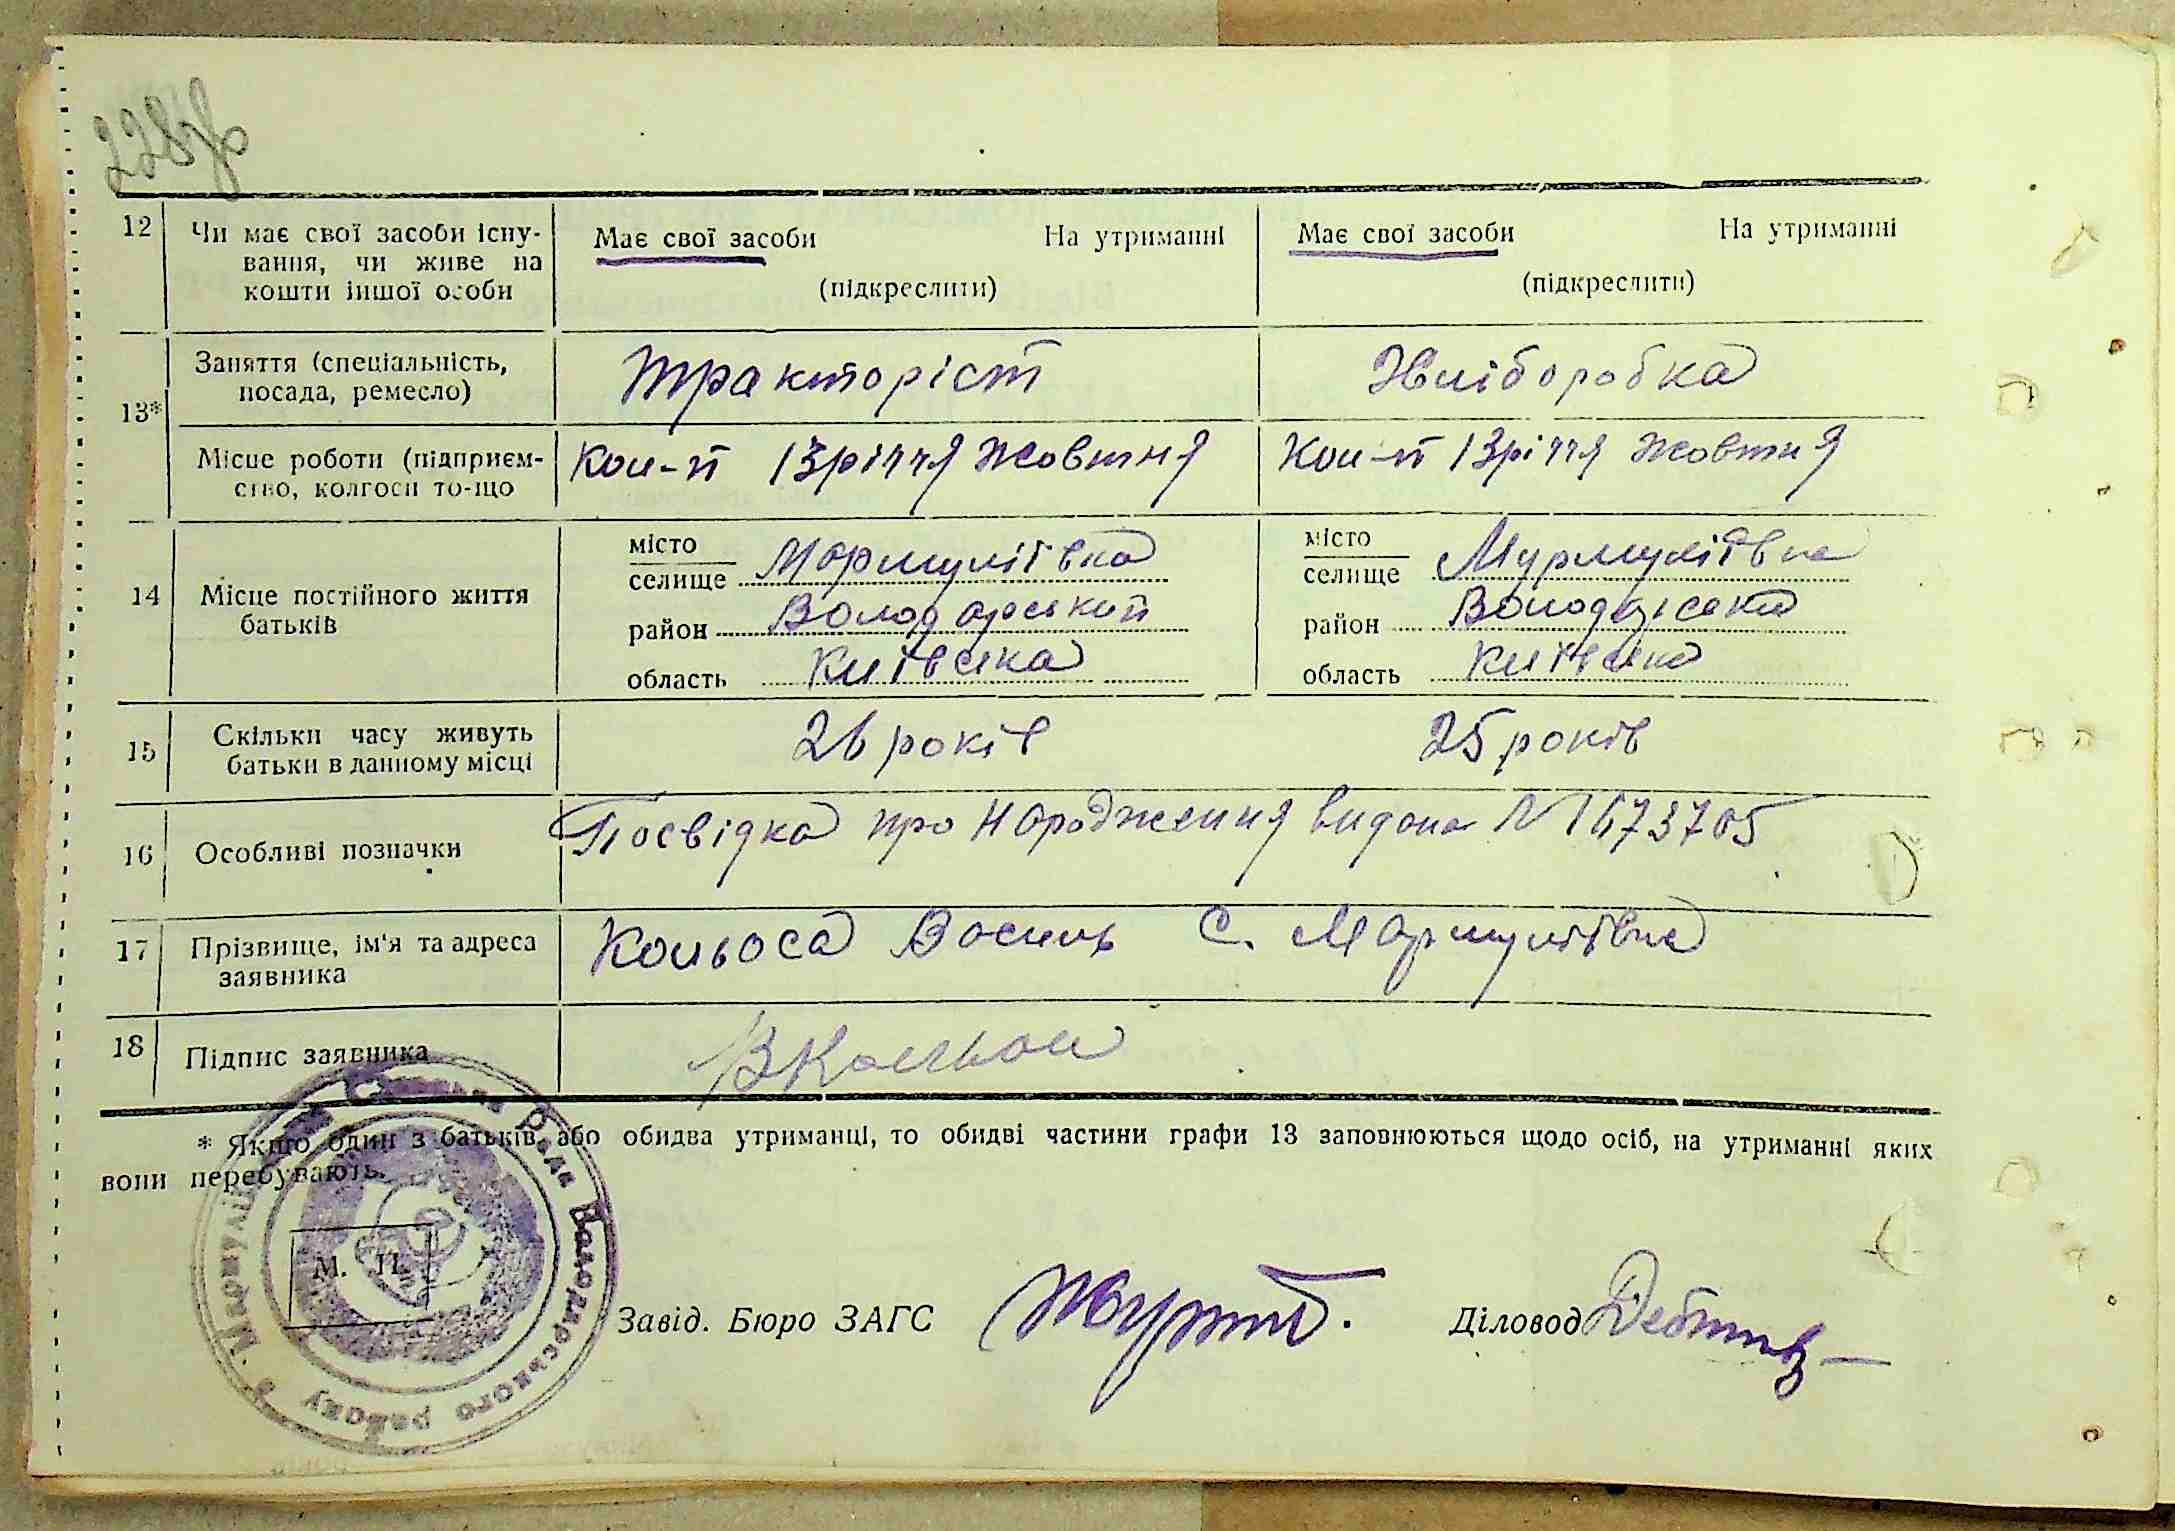 228зв
12 Чи має свої засоби існу-
вання, чи живе на
кошти іншої особи
Має свої засоби На утриманні
(підкреслити)
Має свої засоби На утриманні
(підкреслити)
13*
Заняття (спеціальність,
посада, ремесло)
Тракторіст
Хліборобка
Місце роботи (підприєм-
ство, колгосп то-що
Кол-п 13річчя Жовтня
Кол-п 13річчя Жовтня
14 Місце постійного життя
батьків
місто
селище Мармуліївка
район Володарський
область Київська
місто
селище Мурмуліївка
район Володарськи
область Київська
15 Скільки часу живуть
батьки в данному місці
26 років
25 років
16 Особливі позначки
Посвідка про народження видана N 1673705
17 Прізвище, ім'я та адреса
заявника
Кольоса Василь С. Мармуліївка
18 Підпис заявника
* Якщо один з батьків, або обидва утриманці, то обидві частини графи 13 заповнюються щодо осіб, на утриманні яких
вони перебувають.
М. П.
Рада Володарського району
Завід. Бюро ЗАГС
Діловод